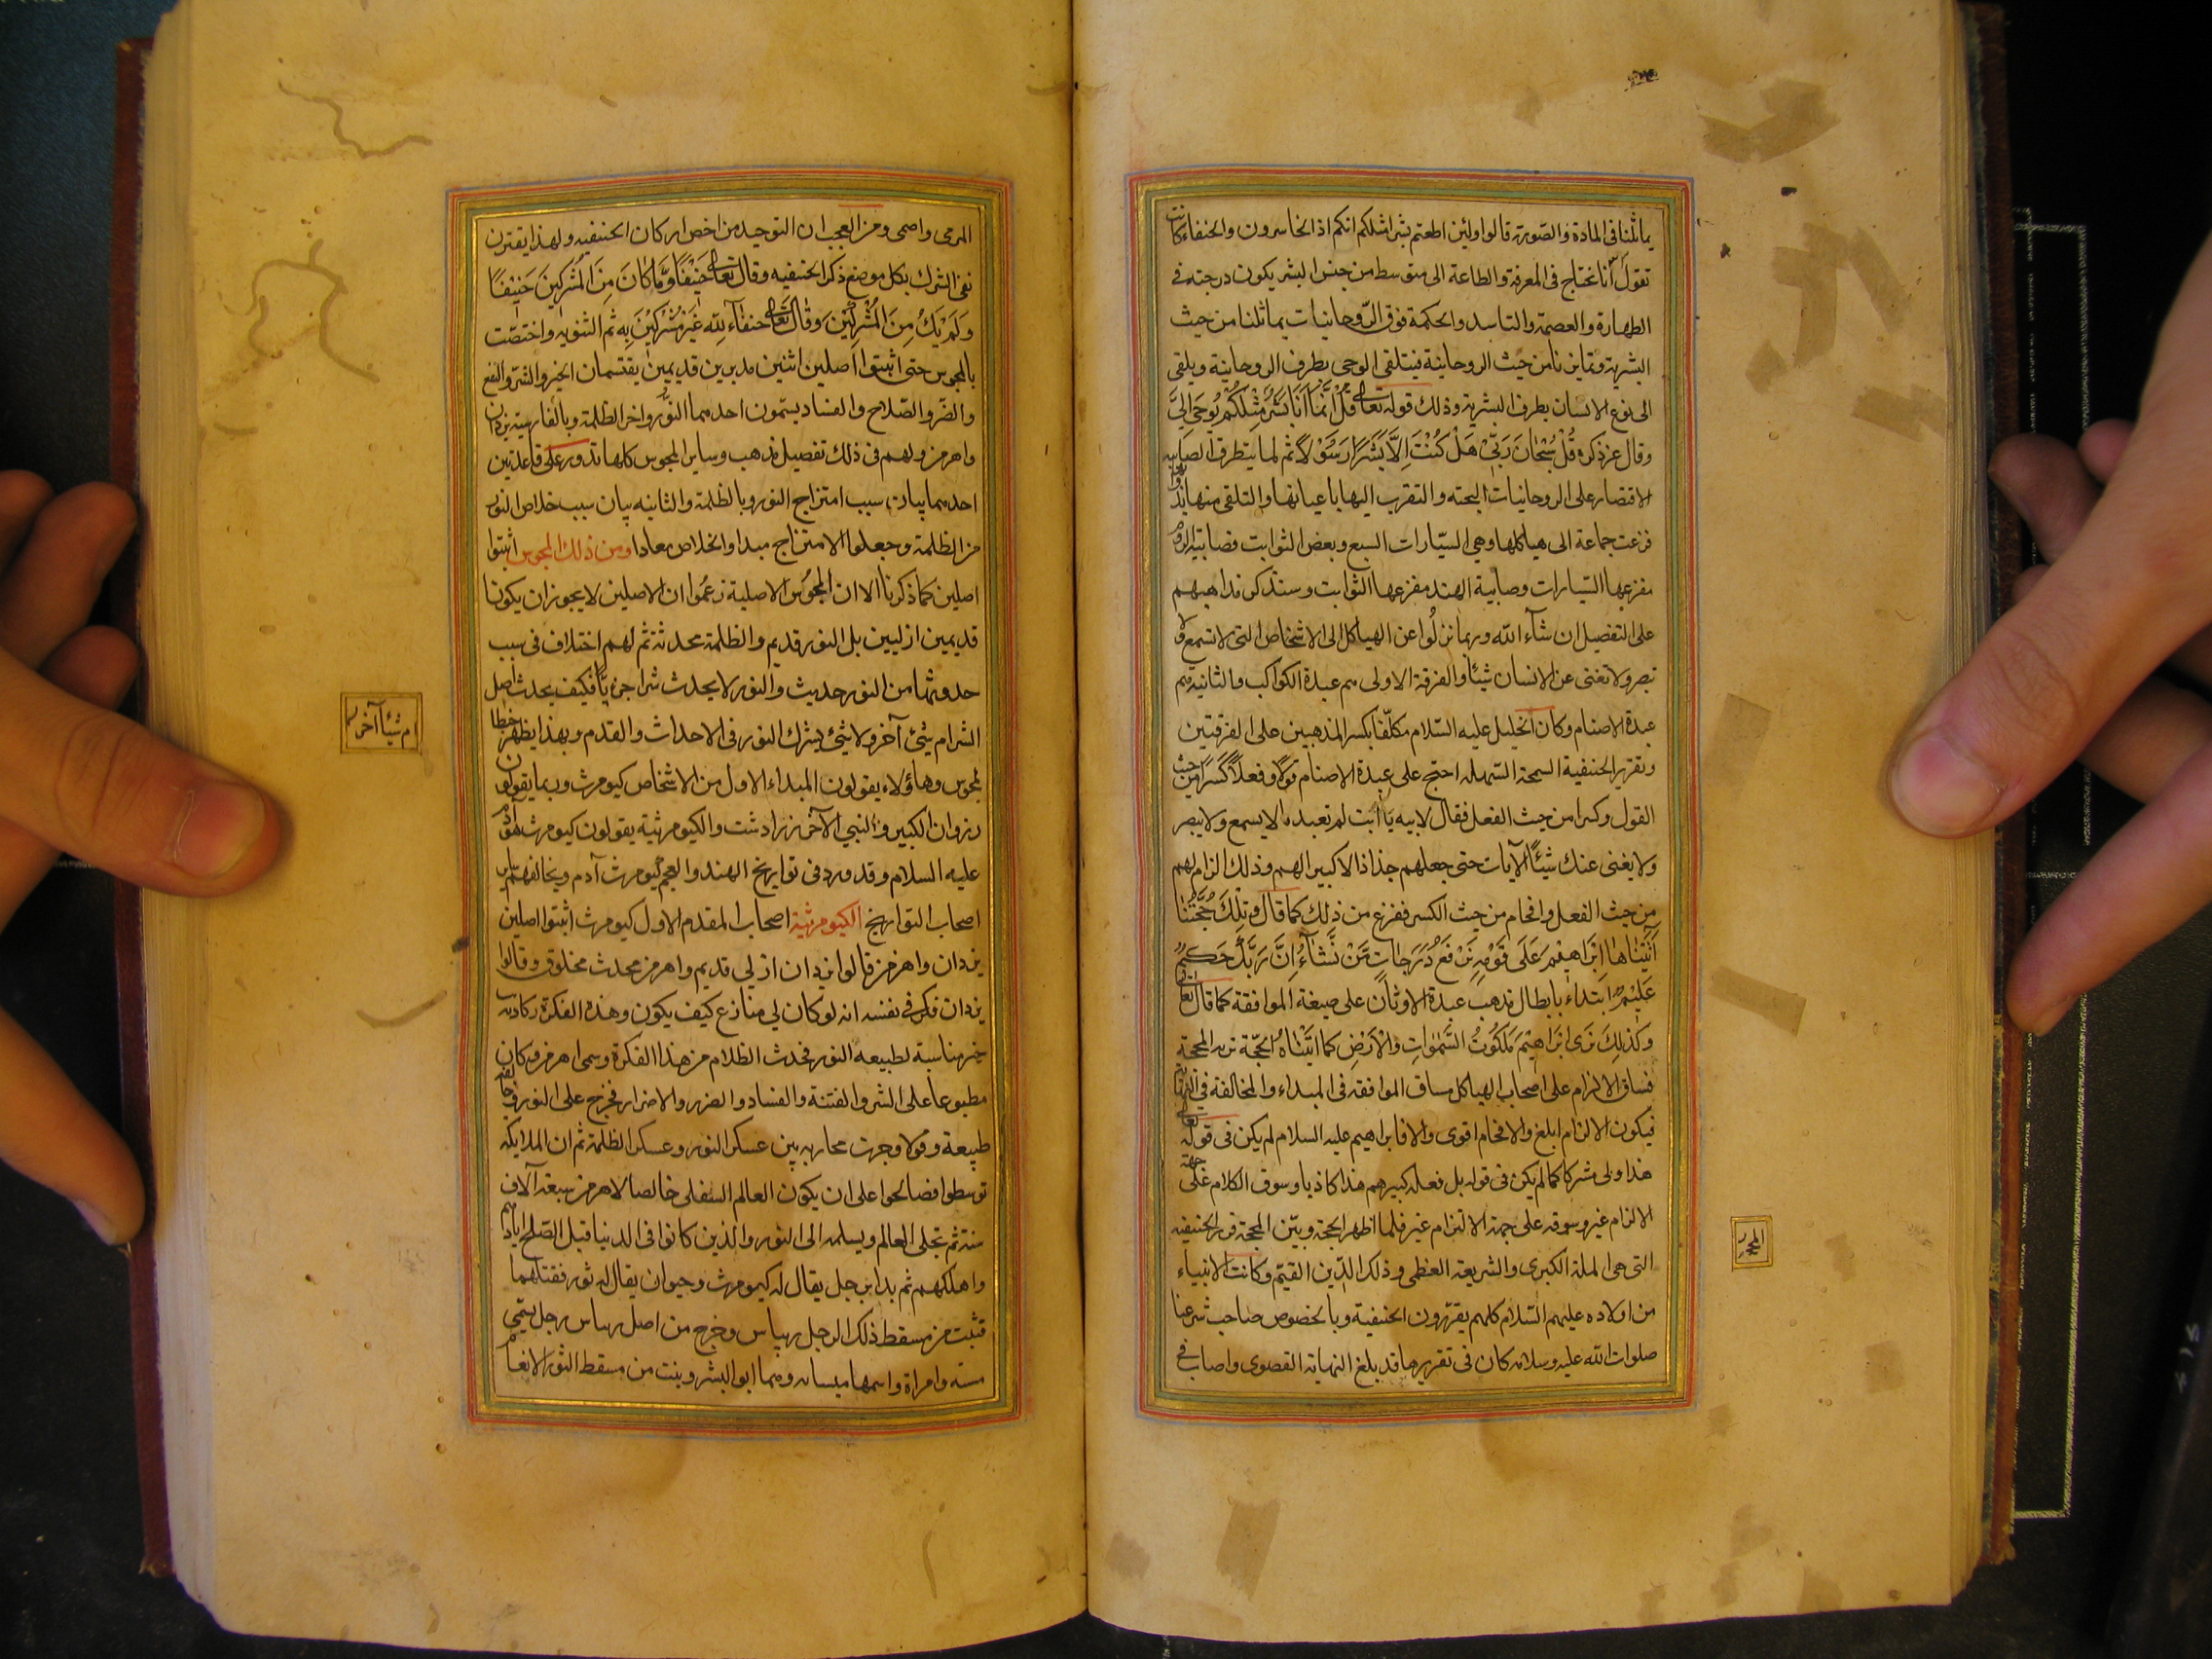 يماثلنا فى المادة والصورة قالوا ولئن اطعتم بشرا مثلكم انكم اذا لخاسرون والحنفاء كانت
تقول انا نحتاج فى المعرفة والطاعة الى متوسط من جنس البشر يكون درجته فى
الطهارة والعصمة والتاسد والحكمة فوق الروحانيات يماثلنا من حيث
البشرية ويماينا من حيث الروحانية فيتلقى الوحى بطرف الروحانية ويلقى
الى نوع الانسان بطرف البشرية وذلك قوله تعالى قل انما انا بشر مثلكم يوحى الى
وقال عز ذكره قل سبحان ربى هل كنت الا بشرا رسولا ثم لما يتطرق الصابيه
الاقتصار على الروحانيات البحته والتقرب اليها باعيانها والتلقى منها بذواتها
فزعت جماعة الى هياكلها وهى السيارات السبع وبعض الثوابت فصابية الروم
مفزعها السيارات وصابية الهند مفزعها الثوابت وسنذكر مذاهبهم
على التفصيل ان شاء الله وربما نزلوا عن الهياكل الى الاشخاص التى لا تسمع ولا
تبصر ولا تغنى عن الانسان شيئا والفرقة الاولى هم عبدة الكواكب والثانية هم
عبدة الاصنام وكان الخليل عليه السلام مكلفا بكسر المذهبين على الفرقتين
وتقرير الحنفية السمحة السهله احتج على عبدة الاصنام قولا وفعلا كسرا من حيث
القول وكسرا من حيث الفعل فقال لابيه يا ابت لم تعبد ما لا يسمع ولا يبصر
ولا يغنى عنك شيئا الآيات حتى جعلهم جذاذا الا كبيرا لهم وذلك الزام لهم
من حيث الفعل وافحام من حيث الكسر ففزع من ذلك كما قال وتلك حجتنا
آتيناها ابراهيم على قومه نرفع درجات من نشاء ان ربك حكيم
عليم ابتداء بابطال مذهب عبدة الاوثان على صيغة الموافقة كما قال تعالى
وكذلك نرى ابراهيم ملكوت السموات والارض كما اتيناه الحجة نريه المحجة
فساق الالزام على اصحاب الهياكل مساق الموافقه فى المبداء والمخالفة فى النهاية
فيكون الالزام ابلغ والافحام اقوى والا فابراهيم عليه السلام لم يكن فى قوله تعالى
هذا ربى مشركا كما لم يكن فى قوله بل فعله كبيرهم هذا كاذبا وسوق الكلام على جهة
الالزام غير وسوقه على جهة الالتزام غير فلما اظهر الحجة وبين المحجة قرر الحنيفيه
التى هى الملة الكبرى والشريعة العظمى وذلك الدين القيم وكانت الانبياء
من اولاده عليهم السلام كلهم يقررون الحنيفية وبالخصوص صاحب شرعنا
صلوات الله عليه وسلامه كان فى تقريرها قد بلغ النهاية القصوى واصاب فى
المرمى واصمى ومن العجب ان التوحيد من اخص اركان الحنيفيه ولهذا يقترن
نفى الشرك بكل موضع ذكر الحنيفيه وقال تعالى حنيفا وما كان من المشركين حنيفا
ولم يك من المشركين وقال تعالى حنفاء لله غير مشركين به ثم الثنويه واختصت
بالمجوس حتى اثبتوا اصلين اثنين مدبرين قديمين يقتسمان الخير والشر والنفع
والضر والصلاح والفساد يسمون احدهما النور واخر الظلمة وبالفارسية يزدان
واهرمز ولهم فى ذلك تفصيل مذهب وساير المجوس كلها تدور على قاعدتين
احدهما بيان سبب امتزاج النور بالظلمة والثانيه بيان سبب خلاص النور
من الظلمة وجعلوا الامتزاج مبدا والخلاص معادا ومن ذلك المجوس اثبتوا
اصلين كما ذكرنا الا ان المجوس الاصلية زعموا ان الاصلين لا يجوز ان يكونا
قديمين ازليين بل النور قديم والظلمة محدثة ثم لهم اختلاف فى سبب
حدوثها من النور حديث والنور لا يحدث شرا جزئيا فكيف يحدث اصل
الشر ام شئ آخر ولا شئ يشرك النور فى الاحداث والقدم وبهذا يظهر خطا
المجوس وهاؤلاء يقولون المبداء الاول من الاشخاص كيومرث وربما يقولون
زروان الكبير والنبي الآخر زرادشت والكيومرثية يقولون كيومرث هو آدم
عليه السلام وقد ورد فى تواريخ الهند والعجم كيومرث آدم ويخالفهم سائر
اصحاب التواريخ الكيومرثية اصحاب المقدم الاول كيومرث اثبتوا اصلين
يزدان واهرمز قالوا يزدان ازلي قديم واهرمز محدث مخلوق وقالوا
يزدان فكر فى نفسه انه لو كان لي منازع كيف يكون وهذه الفكرة ردية
غير مناسبة لطبيعه النور فحدث الظلام من هذا الفكرة وسمى اهرمز وكان
مطبوعا على الشر والفتنة والفساد والضرر والاضرار فخرج على النور وخالفه
طبيعة وقولا وجرت محاربه بين عسكر النور وعسكر الظلمة ثم ان الملايكه
توسطوا فصالحوا على ان يكون العالم السفلى خالصا لاهرمز سبعة آلاف
سنة ثم تخلى العالم ويسلمه الى النور والذين كانوا فى الدنيا قبل الصلح ابادهم
واهلكهم ثم بدا برجل يقال له كيومرث وحيوان يقال له ثور فقتلهما
فنبت من مسقط ذلك الرجل ريباس وخرج من اصل ريباس رجل يسمى
ميشه وامراة واسمها ميسانه وهما ابو البشر وبنت من مسقط الثور الانعام
ام شيئا آخر